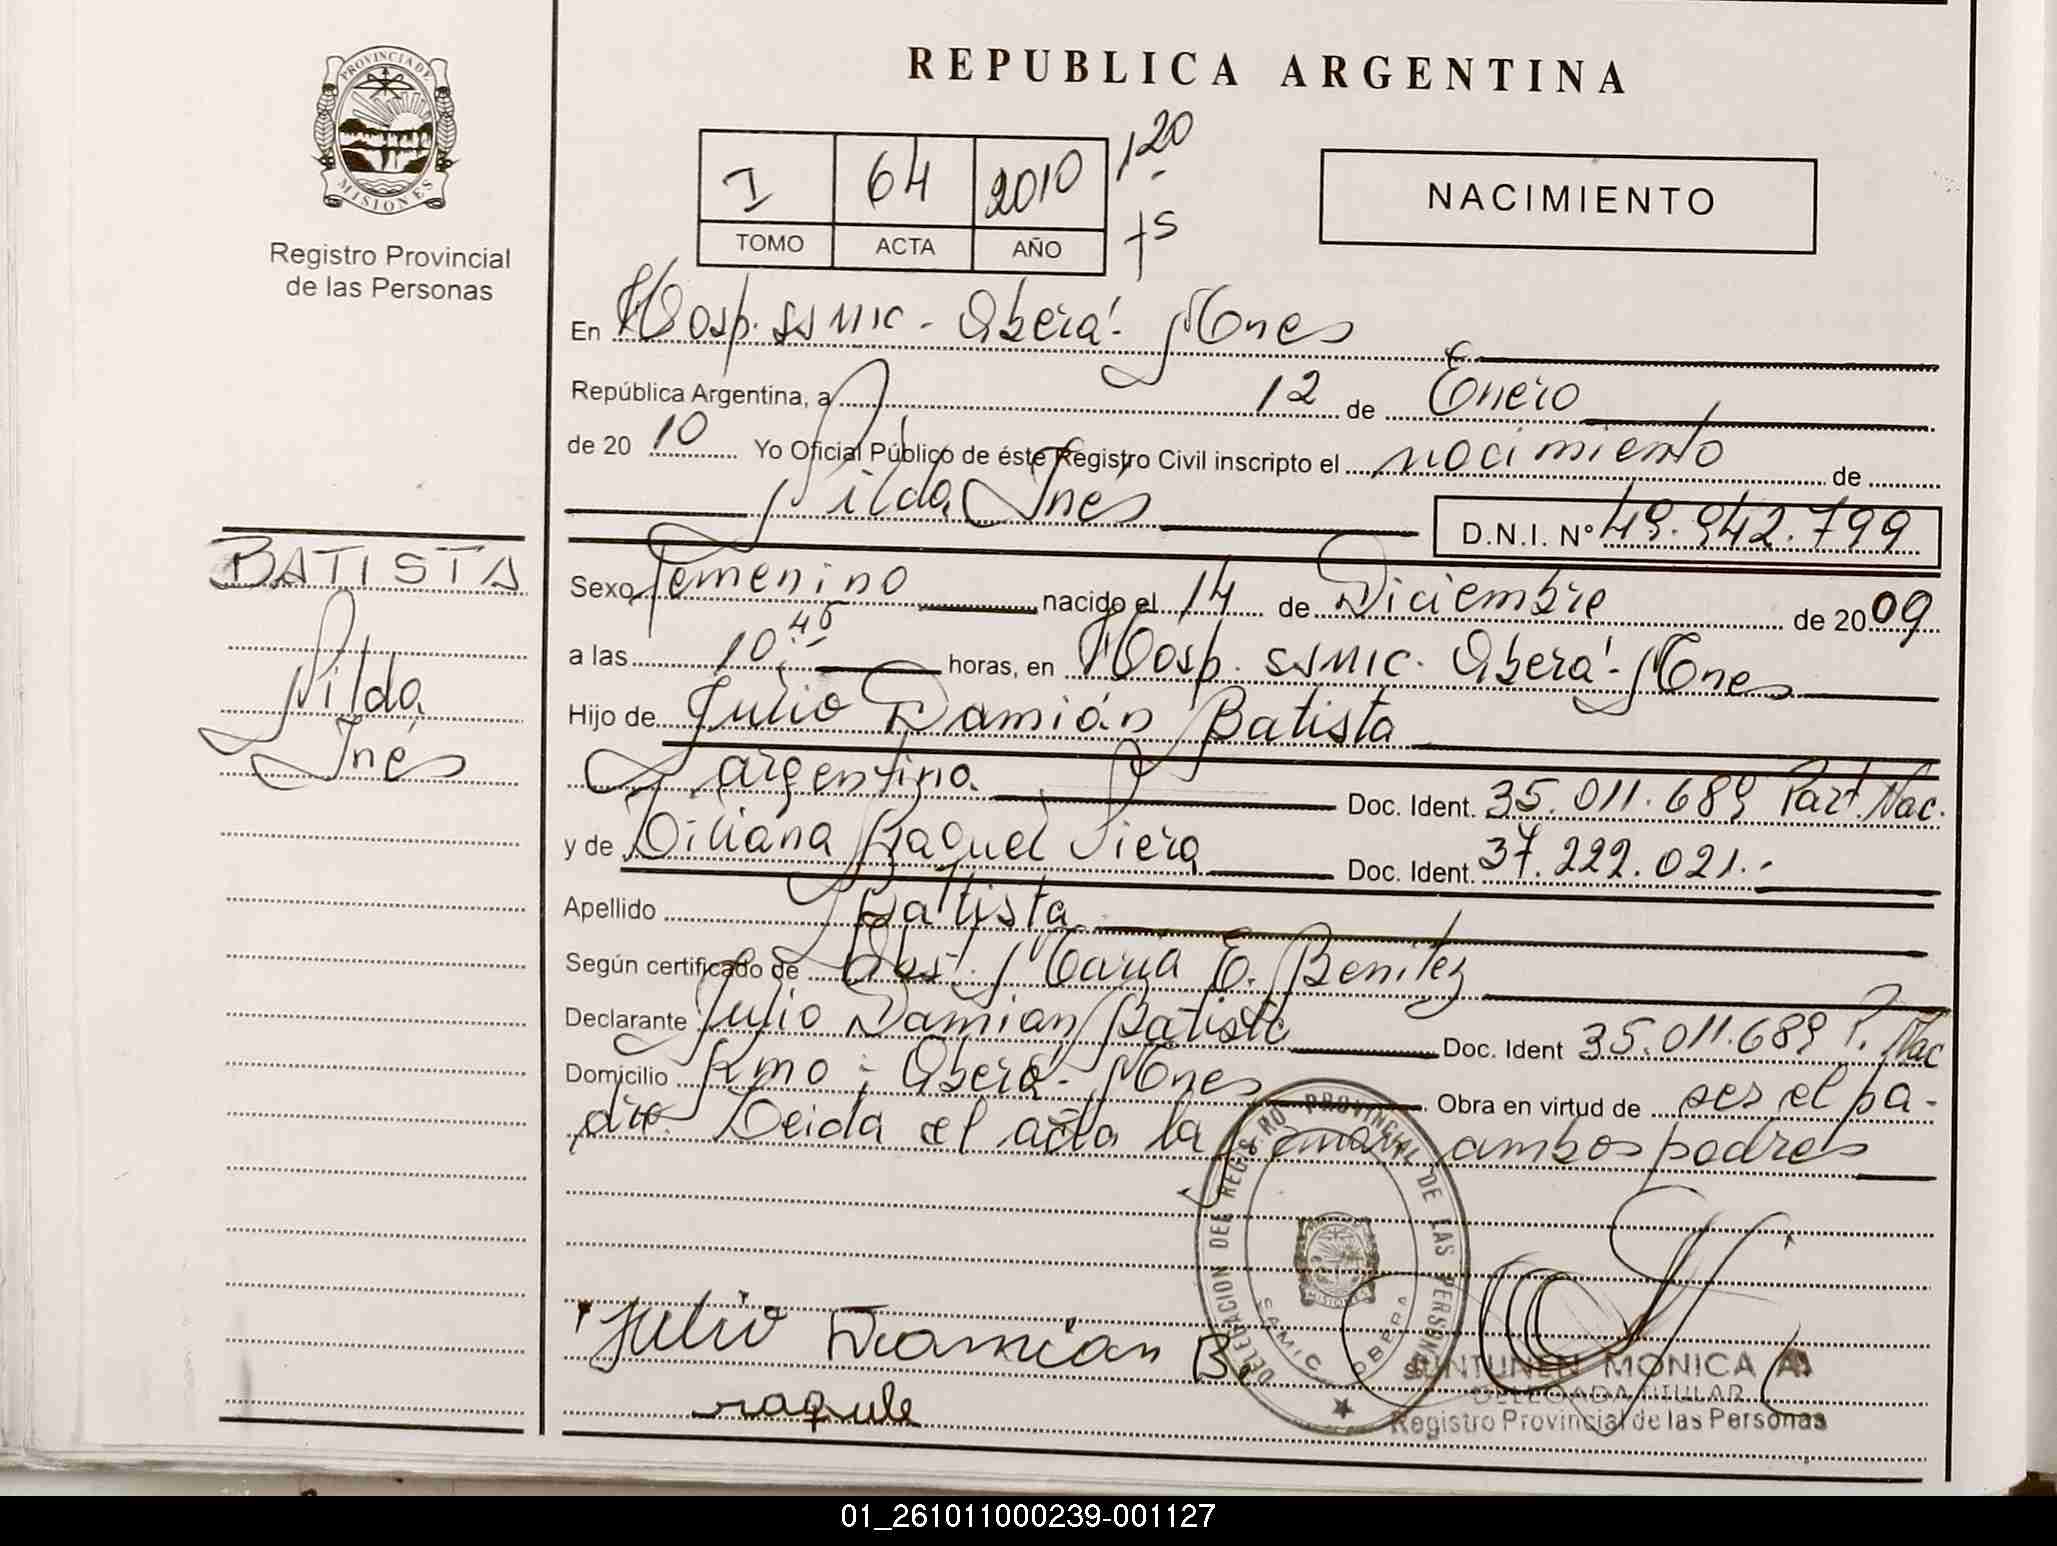 REPUBLICA ARGENTINA
PROVINCIA DE MISIONES
Registro Provincial
de las Personas
I 64 2010 120
TOMO ACTA AÑO
NACIMIENTO
En Hosp. SSMIC - Oberá - Mnes
República Argentina, a 12 de Enero
de 20 10 Yo Oficial Público de éste Registro Civil inscripto el nacimiento de
Nilda Inés D.N.I. Nº 49.942.799
BATISTA
Nilda
Inés
Sexo Femenino nacido el 14 de Diciembre de 20 09
a las 10:45 horas, en Hosp. SSMIC. Oberá - Mnes
Hijo de Julio Damián Batista
argentina Doc. Ident. 35.011.689 Part. Nac.
y de Liliana Raquel Piera Doc. Ident. 37.222.021.-
Apellido Batista
Según certificado de Obst. María E. Benitez
Declarante Julio Damian Batista Doc. Ident 35.011.689 P. Nac
Domicilio Kmo - Oberá - Mnes Obra en virtud de ser el pa-
dre. Leida el acta la firman ambos padres
DELEGACION DEL REGISTRO PROVINCIAL DE LAS PERSONAS
SAMIC OBERA
MISIONES
Julio Damian B.
raqule
SUNTUNEN MONICA A.
DELEGADA TITULAR
Registro Provincial de las Personas
01_261011000239-001127